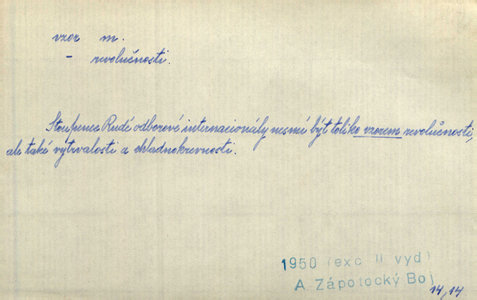 vzor m.
- revolučnosti.
Stoupenec Rudé odborové internacionály nesmí být toliko vzorem revolučnosti,
ale také výtrvalosti a chladnokrevnosti.
1950 (exc II vyd)
A. Zápotocký Boj
14,14